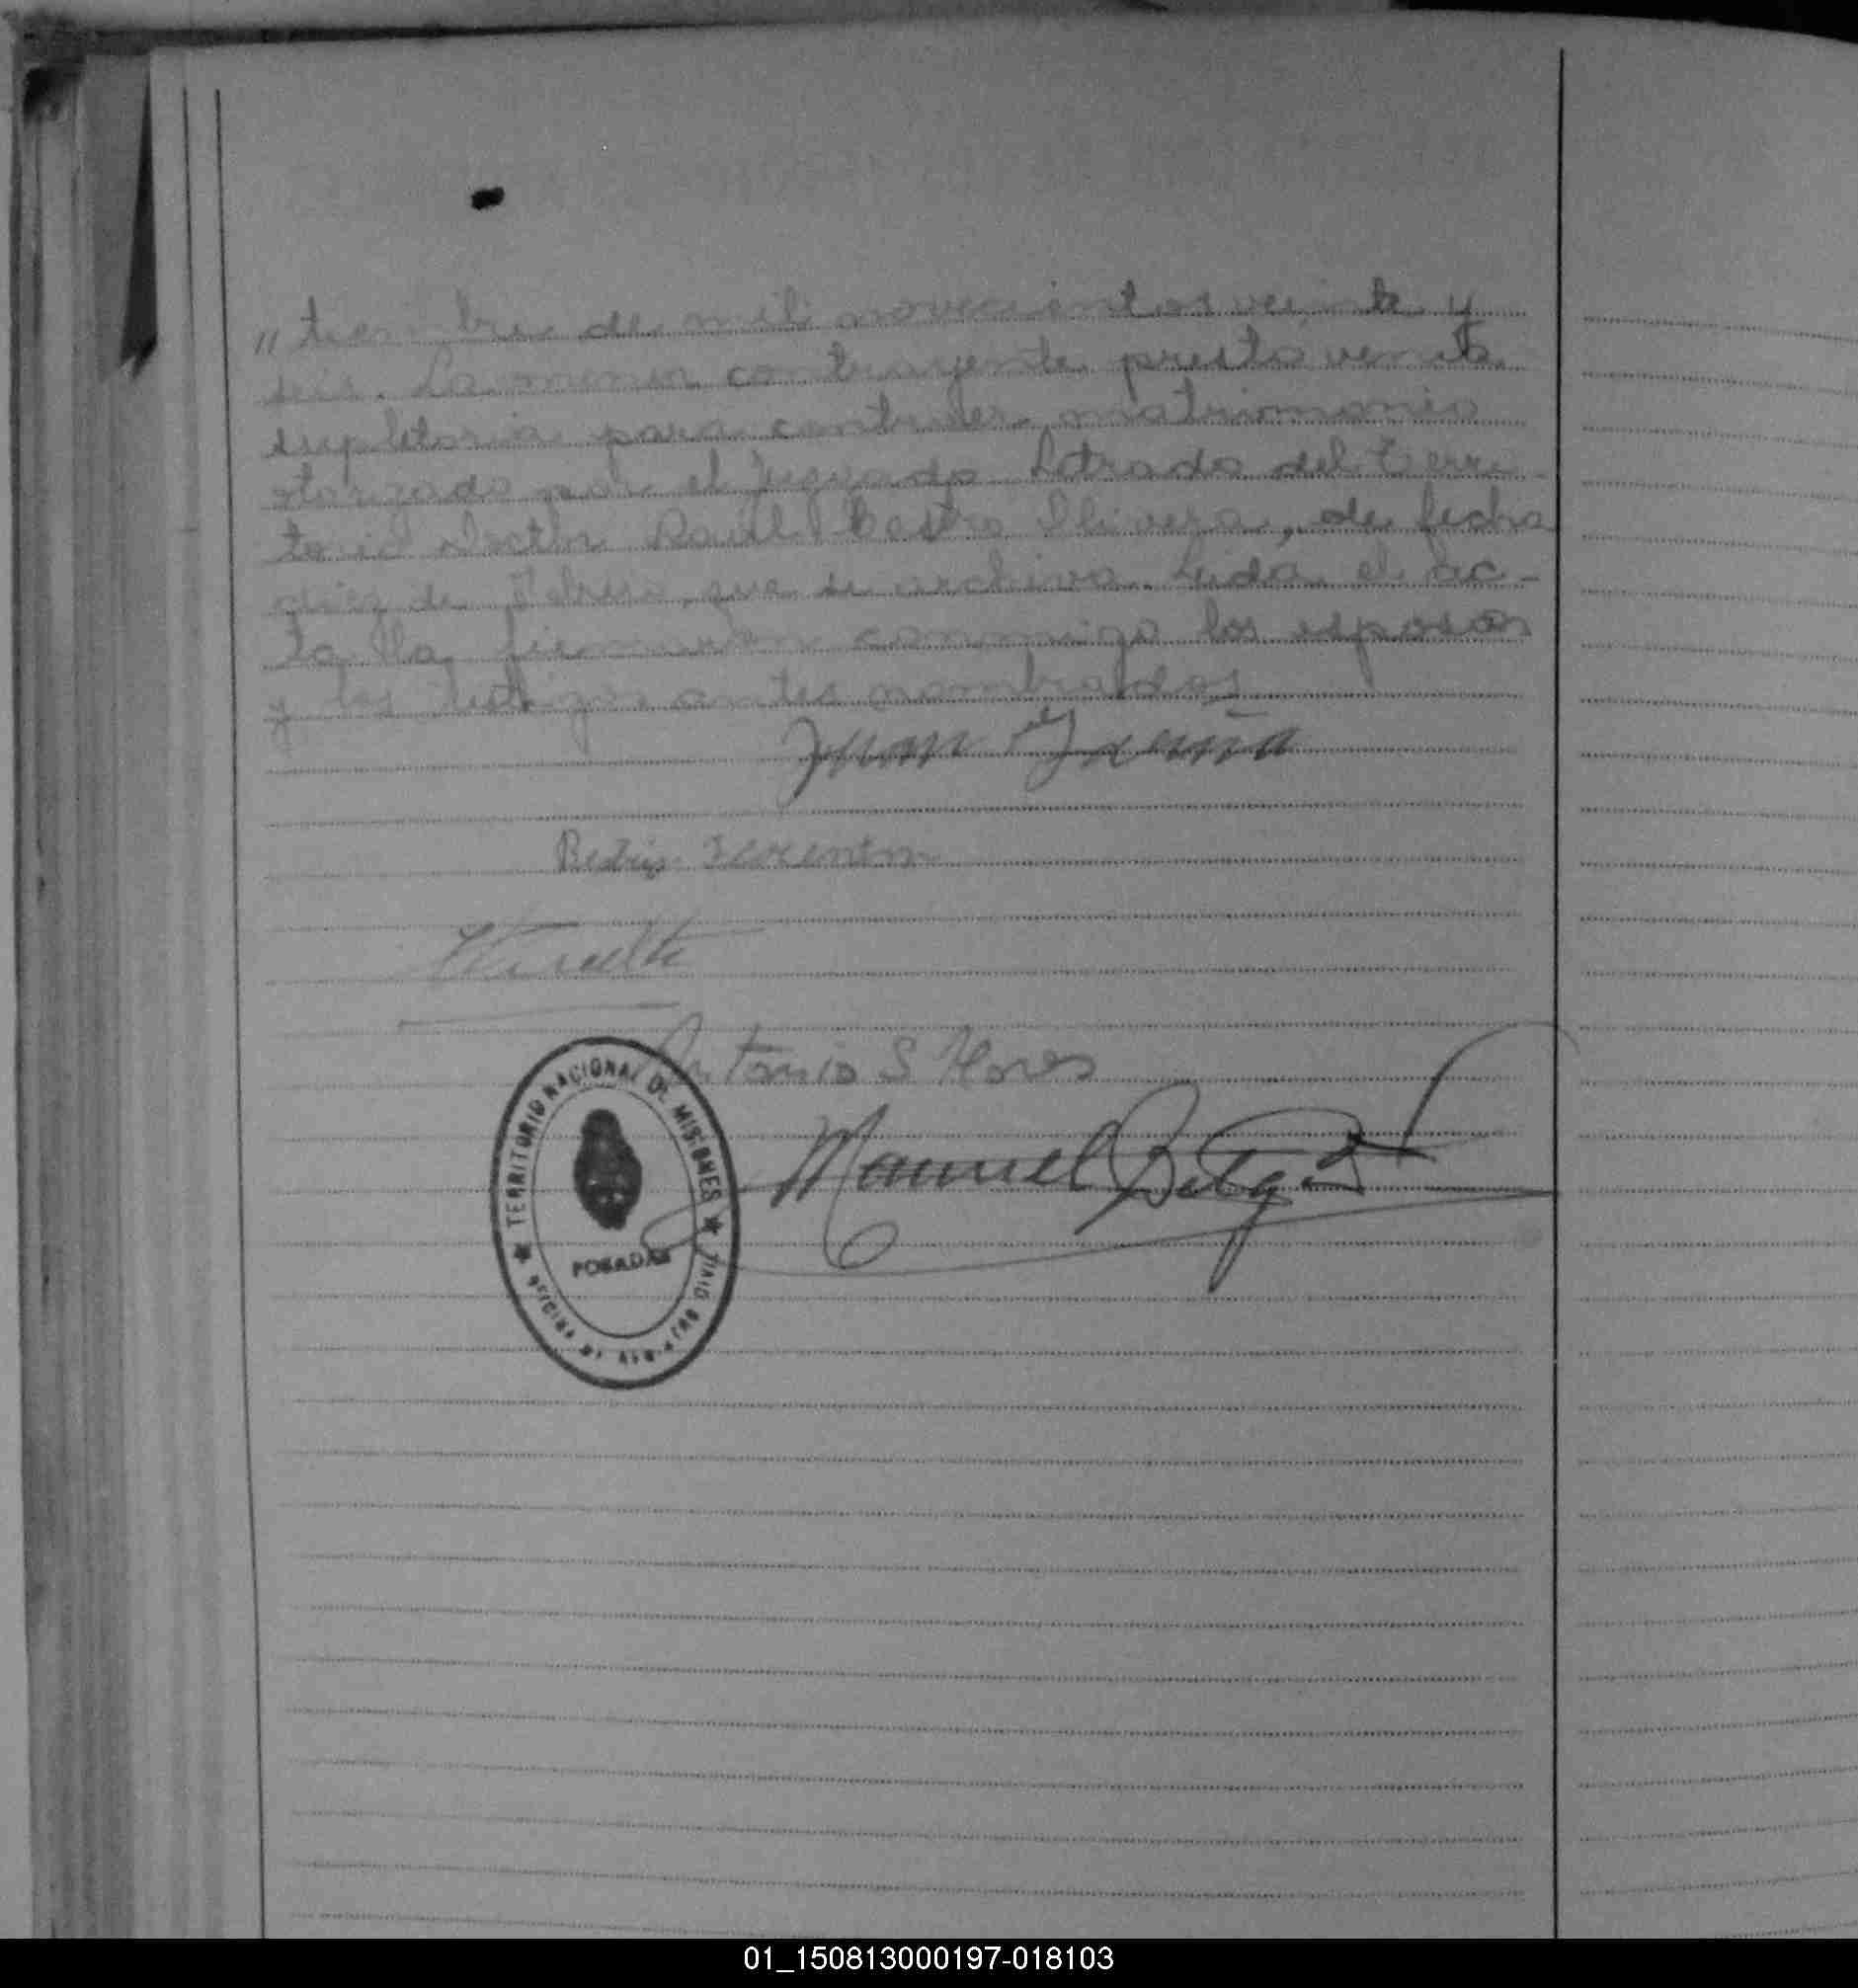 " tiembre de mil novecientos veinte y
seis. La menor contrayente prestó venia
supletoria para contraer matrimonio
otorgado por el Juzgado Letrado del Terri-
torio Doctor Raúl Castro Olivera, de fecha
diez de que se archiva. Leída el Ac-
ta la firmaron conmigo los esposos
y los testigos antes nombrados
Juan
Antonio S Flores
Manuel
TERRITORIO NACIONAL DE MISIONES
POSADAS
OFICINA DE CIVIL
01_150813000197-018103